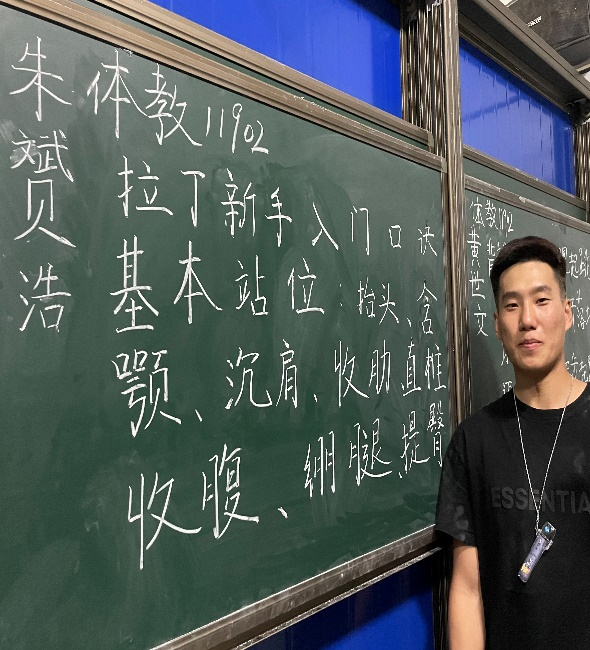 朱赟浩
体教11902
拉丁新手入门口诀
基本站位:抬头、含
颚、沉肩、收肋直椎
收腹、绷腿、提臀
体教1192
黄世文
ESSENTIA